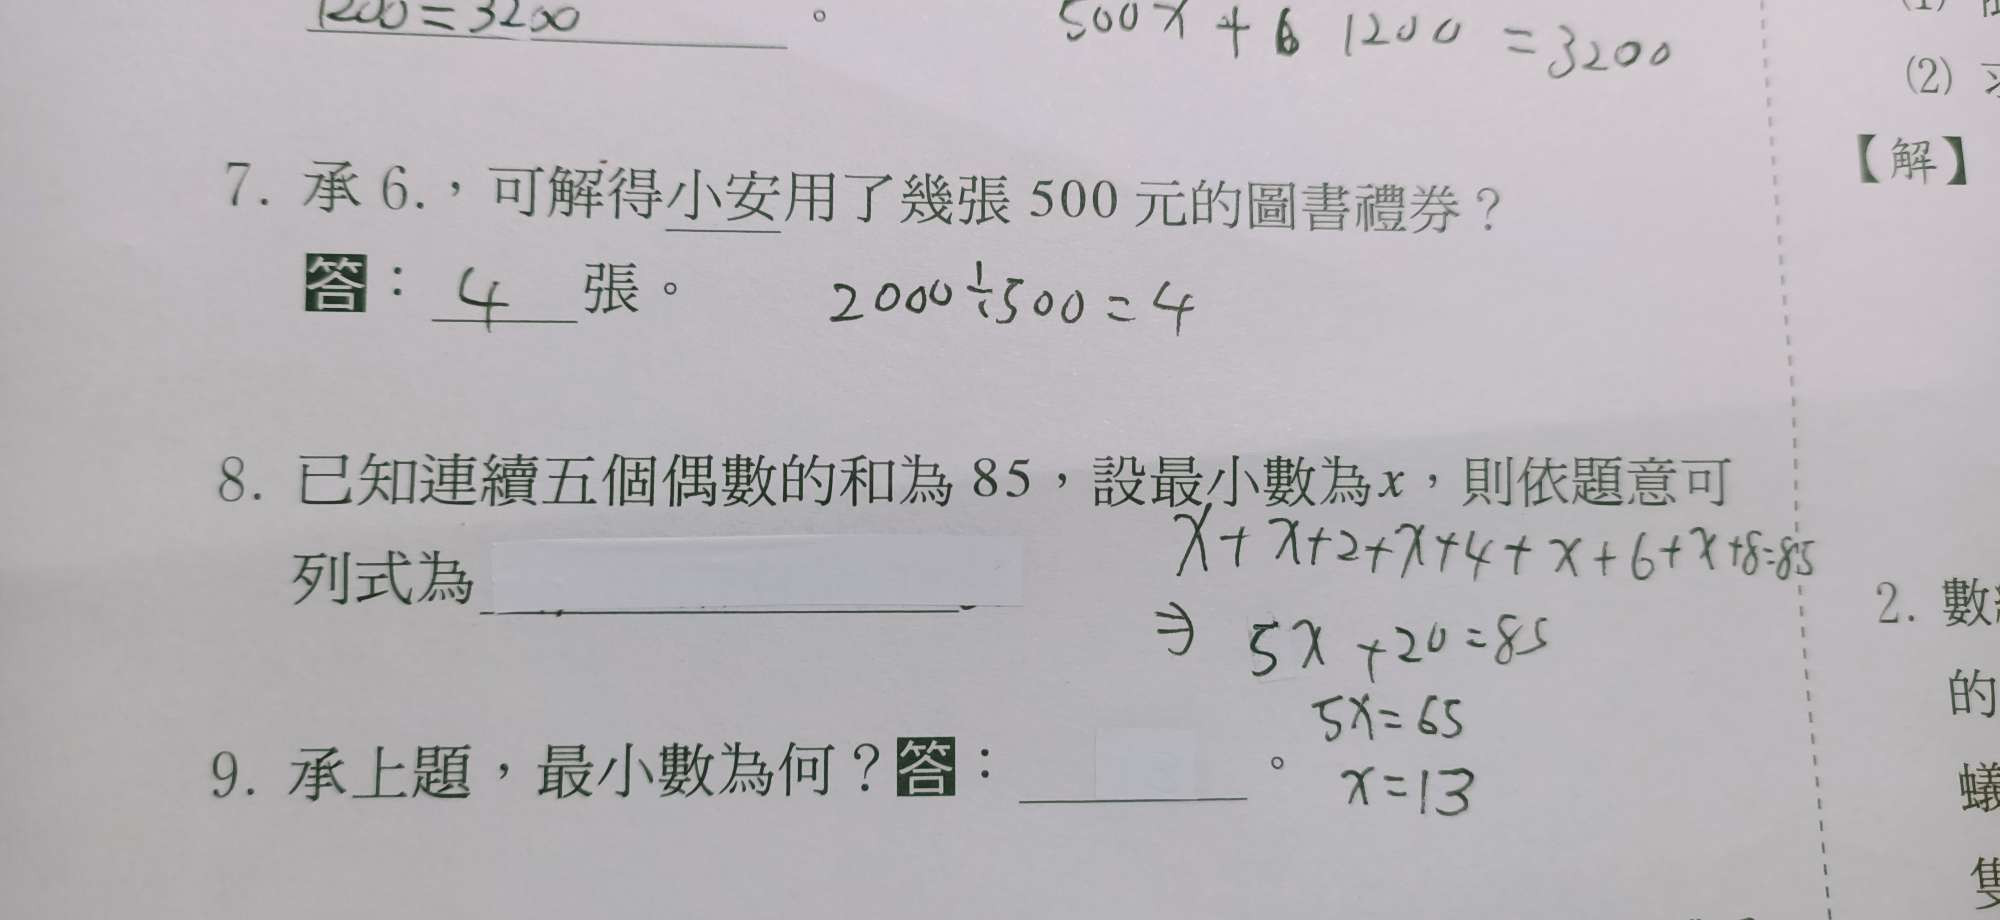 1200=3200 。
500x+6 1200=3200
7. 承 6.，可解得小安用了幾張 500 元的圖書禮券？
答：4 張。 2000÷500=4
8. 已知連續五個偶數的和為 85，設最小數為x，則依題意可
列式為
x+x+2+x+4+x+6+x+8=85
⇒ 5x+20=85
5x=65
9. 承上題，最小數為何？答： 。
x=13
(2)
【解】
2. 數
的
蟻
隻